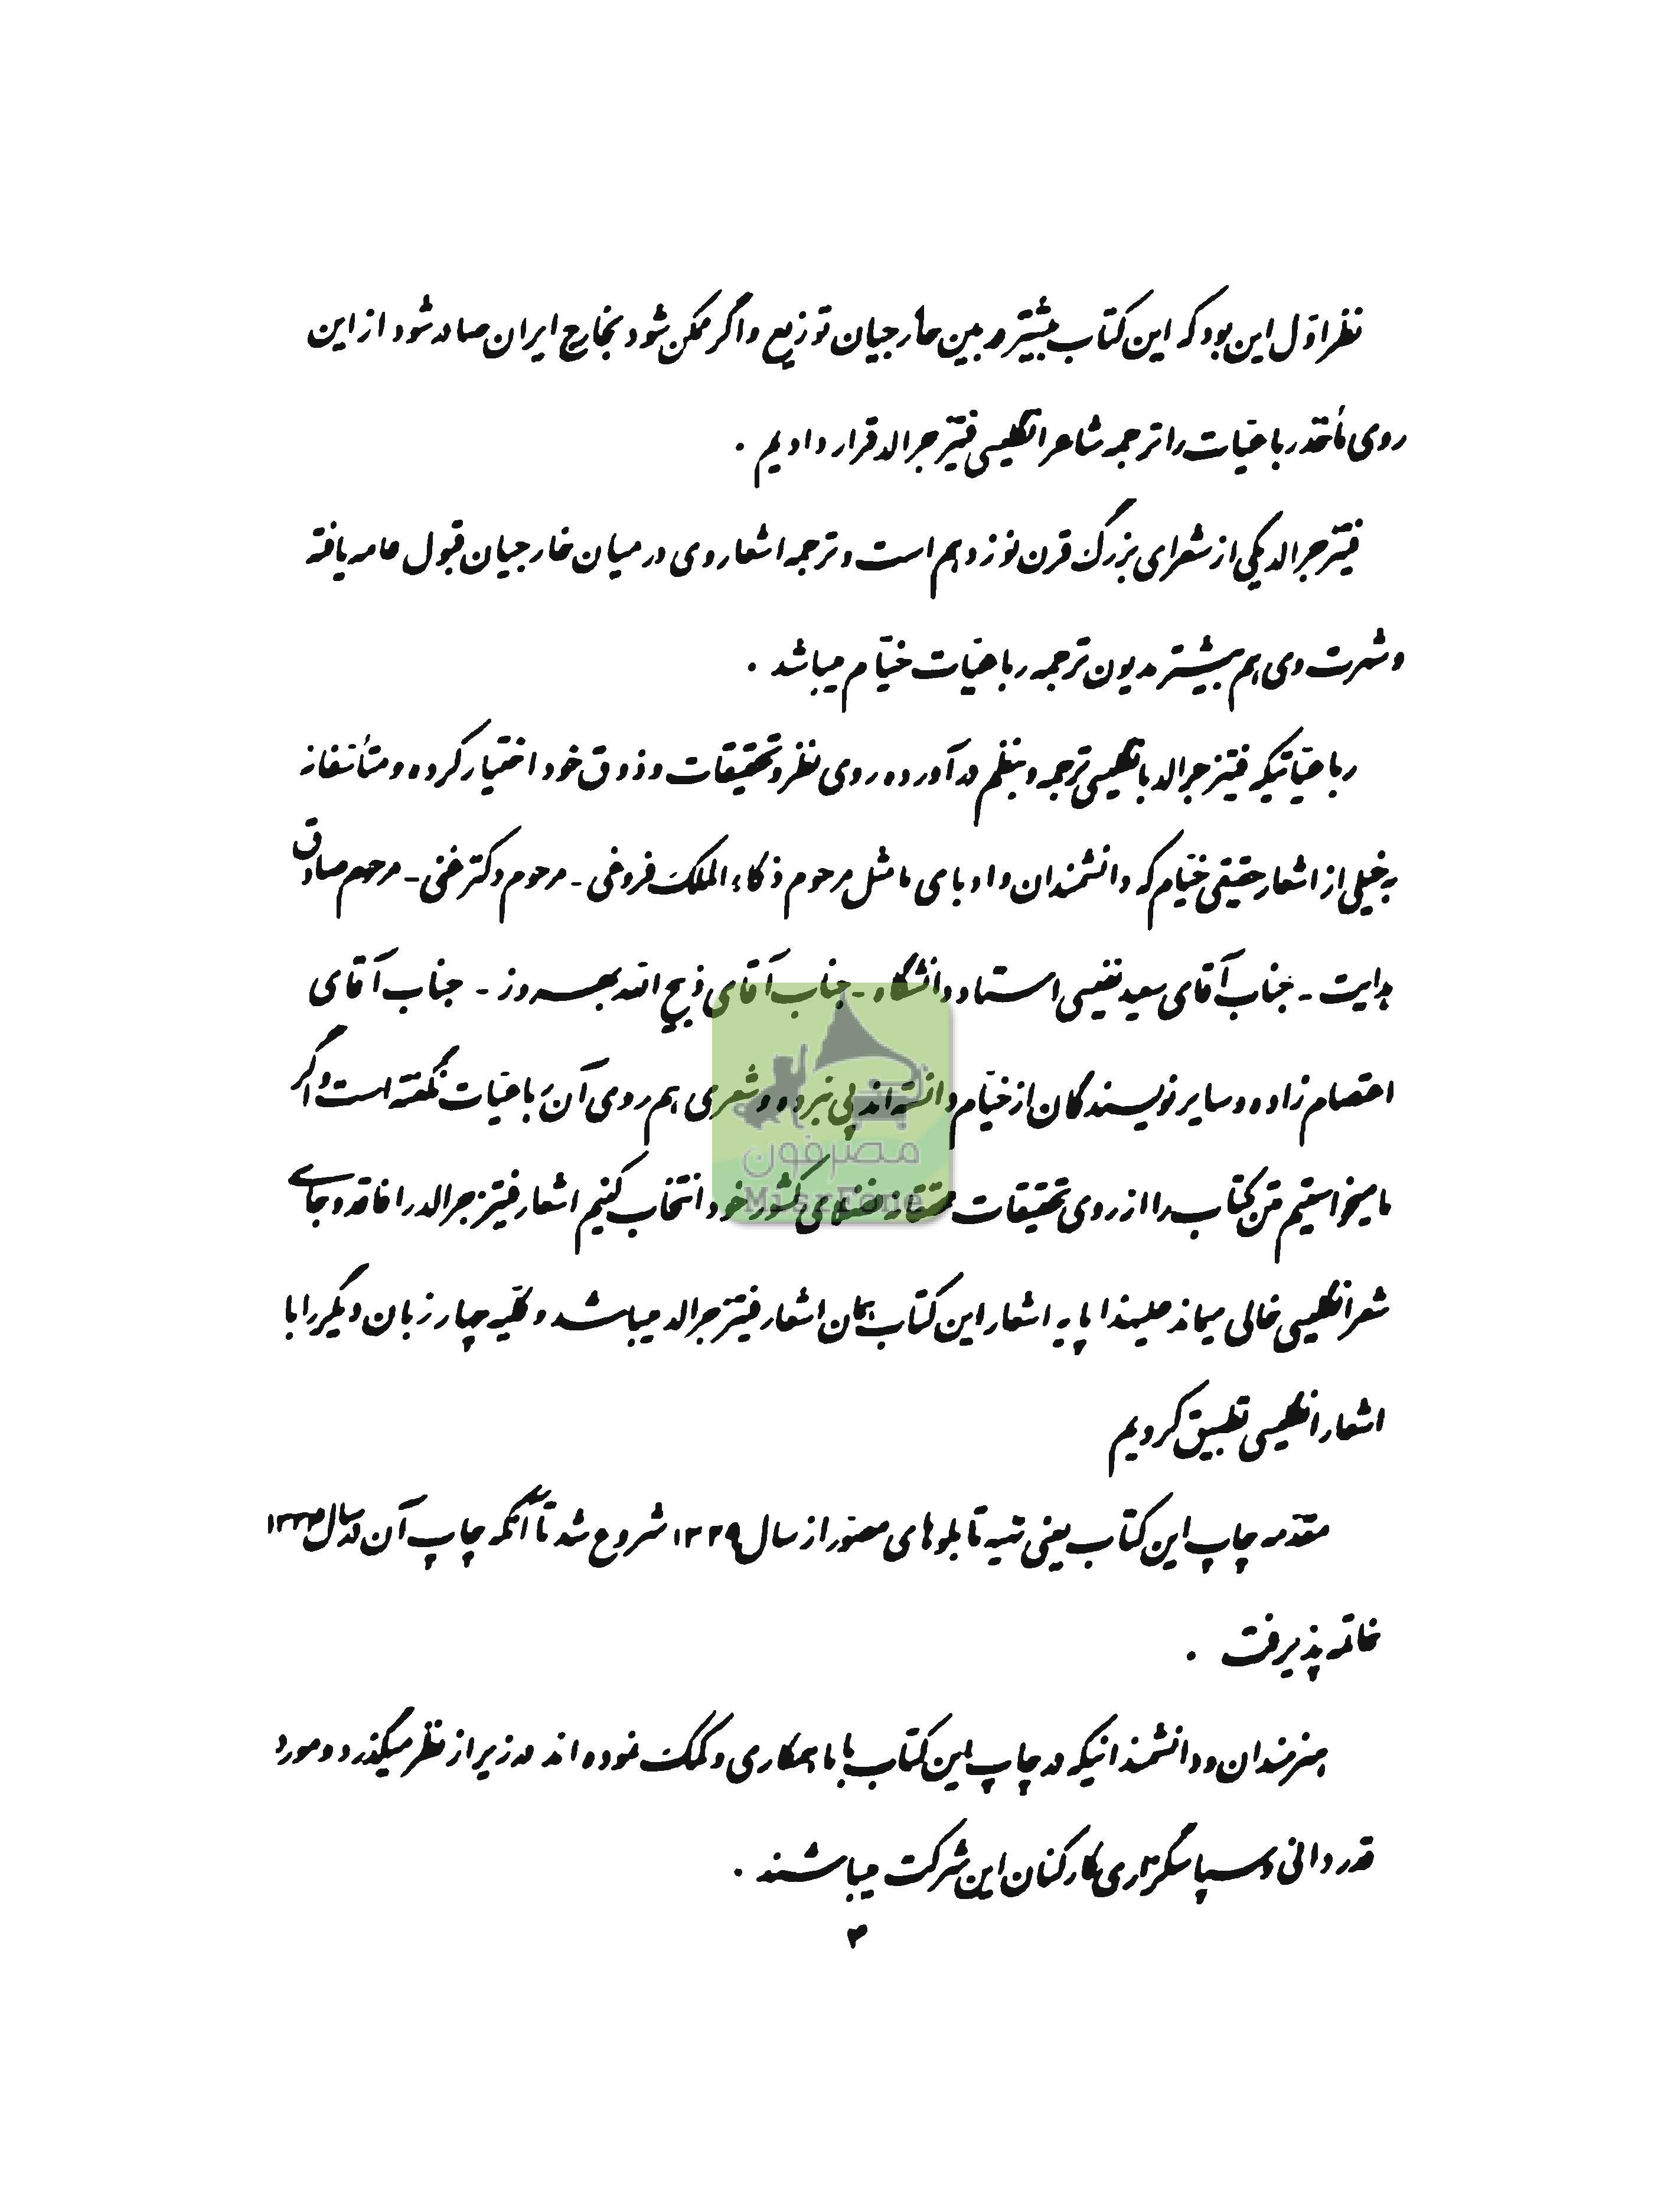 نظر اوّل این بود که این کتاب بیشتر در بین خارجیان توزیع و اگر ممکن شود بخارج ایران صادر شود از این
روی مأخذ رباعیّات را ترجمه شاعر انگلیسی فیتزجرالد قرار دادیم .
فیتزجرالد یکی از شعرای بزرگ قرن نوزدهم است و ترجمه اشعار وی در میان خارجیان قبول عامه یافته
و شهرت وی هم بیشتر مدیون ترجمه رباعیّات خیّام میباشد .
رباعیّاتیکه فیتزجرالد بانگلیسی ترجمه و بنظم درآورده روی نظر و تحقیقات و ذوق خود اختیار کرده و متأسفانه
به خیلی از اشعار حقیقی خیّام که دانشمندان و ادبای ما مثل مرحوم ذکاء الملک فروغی - مرحوم دکتر غنی - مرحوم صادق
هدایت - جناب آقای سعید نفیسی استاد دانشگاه - جناب آقای ذبیح الله بهروز - جناب آقای
اعتصام زاده و سایر نویسندگان از خیّام دانسته‌اند پی نبرده و شعری هم روی آن رباعیّات نگفته است و اگر
ما میخواستیم متن کتاب را از روی تحقیقات محققانه فضلای کشور خود انتخاب کنیم اشعار فیتزجرالد را فاقد و جای
شعر انگلیسی خالی میماند علیهذا پایه اشعار این کتاب همان اشعار فیتزجرالد میباشد و کلیّه چهار زبان دیگر را با
اشعار انگلیسی تطبیق کردیم
مقدّمه چاپ این کتاب یعنی تهیه تابلوهای مصوّر از سال ۱۳۲۹ شروع شد تا آنکه چاپ آن در سال
خاتمه پذیرفت .
هنرمندان و دانشمندانیکه در چاپ این کتاب با ما همکاری و کمک نموده اند در زیر از نظر میگذرد و مورد
قدردانی و سپاسگزاری کارکنان این شرکت میباشند .
۳
مصرفون
MisrFone